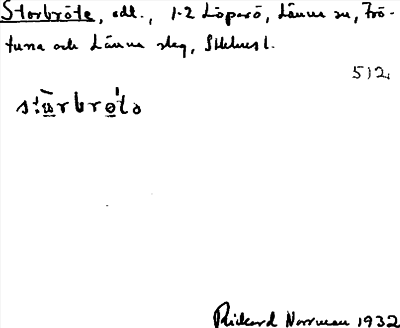 Storbröte, odl., 1-2 Löparö, Länna sn, Frö-
tuna och Länna skg, Sthlms l.
512.
stωrbrøto
Rickard Norrman 1932